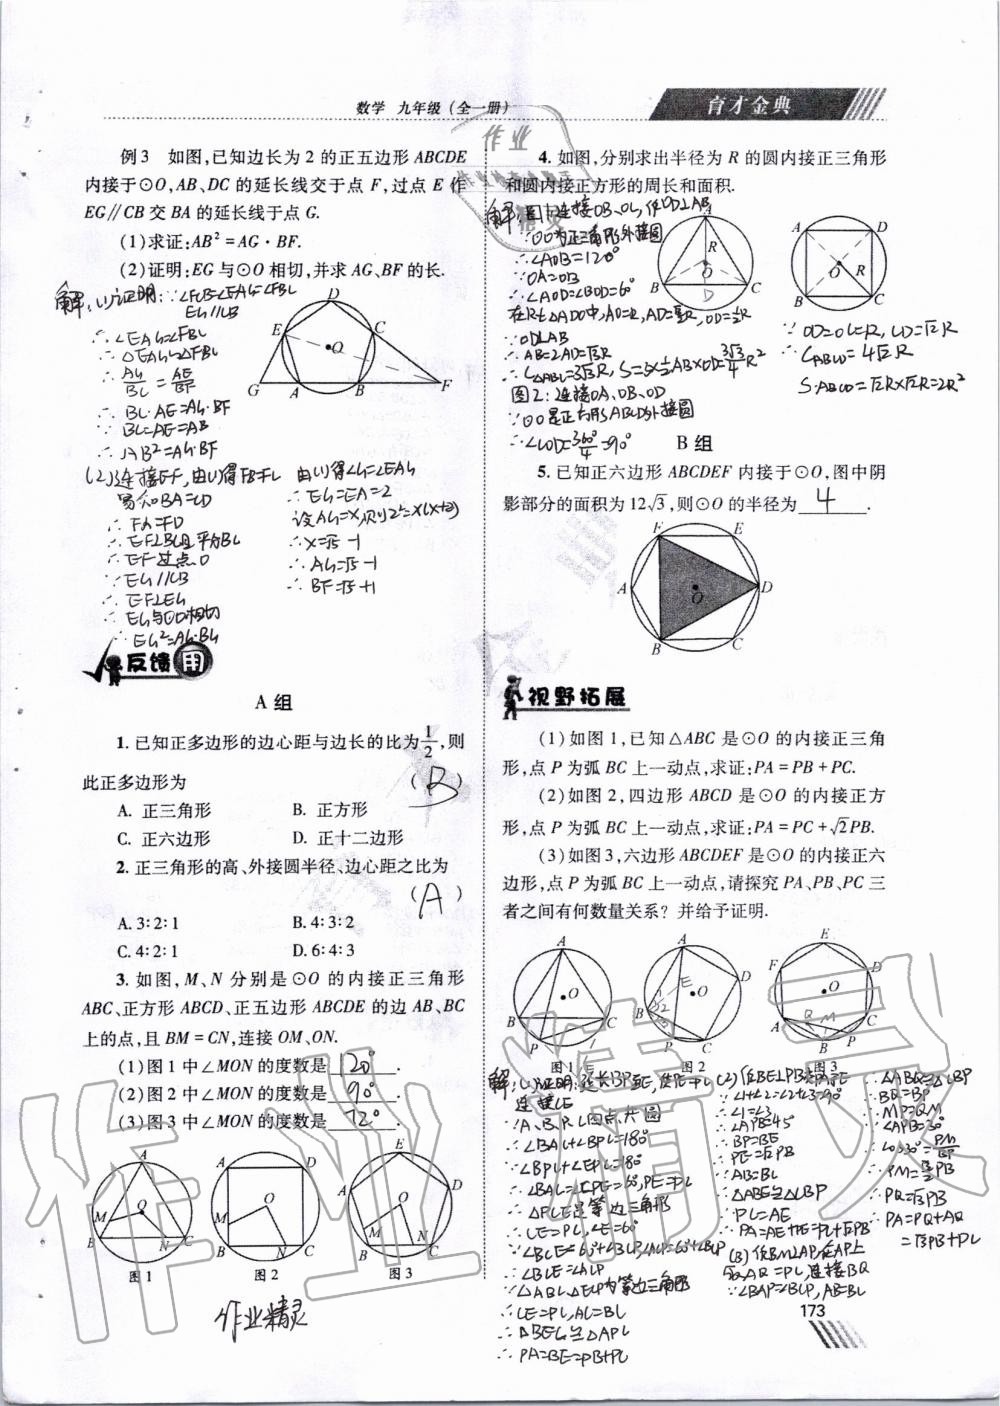 数学 九年级(全一册)
育才金典
例3 如图,已知边长为2的正五边形ABCDE
内接于⊙O,AB、DC的延长线交于点F,过点E作
EG∥CB交BA的延长线于点G.
(1)求证:AB²=AG·BF.
(2)证明:EG与⊙O相切,并求AG、BF的长.
解:(1)证明:∵∠FCB=∠EAG=∠FBC
EG∥CB
∴∠EAG=∠FBC
∴△EAG∽△FBC
∴AG/BC=AE/BF
∴BC·AE=AG·BF
∵BC=AE=AB
∴AB²=AG·BF
D
E
C
O
G
A
B
F
(2)连接EF,由(1)得FB=FC
易知BA=CD
∴FA=FD
∴EF⊥BC且平分BC
∴EF过点O
∵EG∥CB
∴EF⊥EG
∴EG与⊙O相切
∴EG²=AG·BG
由(1)得∠G=∠EAG
∴EG=EA=2
设AG=x,则2²=x(x+2)
∴x=√5-1
∴AG=√5-1
∴BF=√5+1
反馈用
A组
1.已知正多边形的边心距与边长的比为1/2,则
此正多边形为 (B)
A. 正三角形 B. 正方形
C. 正六边形 D. 正十二边形
2.正三角形的高、外接圆半径、边心距之比为
(A)
A.3∶2∶1 B.4∶3∶2
C.4∶2∶1 D.6∶4∶3
3.如图,M、N分别是⊙O的内接正三角形
ABC、正方形ABCD、正五边形ABCDE的边AB、BC
上的点,且BM=CN,连接OM、ON.
(1)图1中∠MON的度数是120°.
(2)图2中∠MON的度数是90°.
(3)图3中∠MON的度数是72°.
图1 图2 图3
作业精灵
4.如图,分别求出半径为R的圆内接正三角形
和圆内接正方形的周长和面积.
解:图1:连接OB、OC,作OD⊥AB
∵⊙O为正三角形外接圆
∴∠AOB=120°
∵OA=OB
∴∠AOD=∠BOD=60°
∴AB=2AD=√3R
图2:连接OA、OB、OD
∵⊙O是正方形ABCD外接圆
∴∠COD=360°/4=90°
∵OD=OC=R,CD=√2R
∴C_ABCD=4√2R
S_ABCD=√2R×√2R=2R²
B组
5.已知正六边形ABCDEF内接于⊙O,图中阴
影部分的面积为12√3,则⊙O的半径为4.
F
E
A
D
O
B
C
视野拓展
(1)如图1,已知△ABC是⊙O的内接正三角
形,点P为弧BC上一动点,求证:PA=PB+PC.
(2)如图2,四边形ABCD是⊙O的内接正方
形,点P为弧BC上一动点,求证:PA=PC+√2PB.
(3)如图3,六边形ABCDEF是⊙O的内接正六
边形,点P为弧BC上一动点,请探究PA、PB、PC三
者之间有何数量关系?并给予证明.
图1 图2 图3
解:(1)证明:延长BP至E,使PE=PC
连接CE
∵A、B、P、C四点共圆
∴∠BAC+∠BPC=180°
∵∠BPC+∠EPC=180°
∴∠BAC=∠CPE=60°,PE=PC
∴△PCE是等边三角形
∴CE=PC,∠E=60°
∴∠BCE=∠ACP
∴CE=PC,AC=BC
∴△BEC≌△APC
∴PA=BE=PB+PC
∵∠1+∠2=∠2+∠3=90°
∴∠1=∠3
∴∠APB=45°
∴BP=BE
∴PE=√2PB
∵AB=BC
∴△ABE≌△CBP
∴PC=AE
∴PA=AE+PE=PC+√2PB
(3)作BM⊥AP,在AP上
取AQ=PC,连接BQ
∵∠BAP=∠BCP,AB=BC
∴△ABQ≌△CBP
∴BQ=BP
∴MP=QM
∴∠APB=30°
∴PM=√3/2PB
∴PQ=√3PB
∴PA=PQ+AQ
=√3PB+PC
173
作业精灵